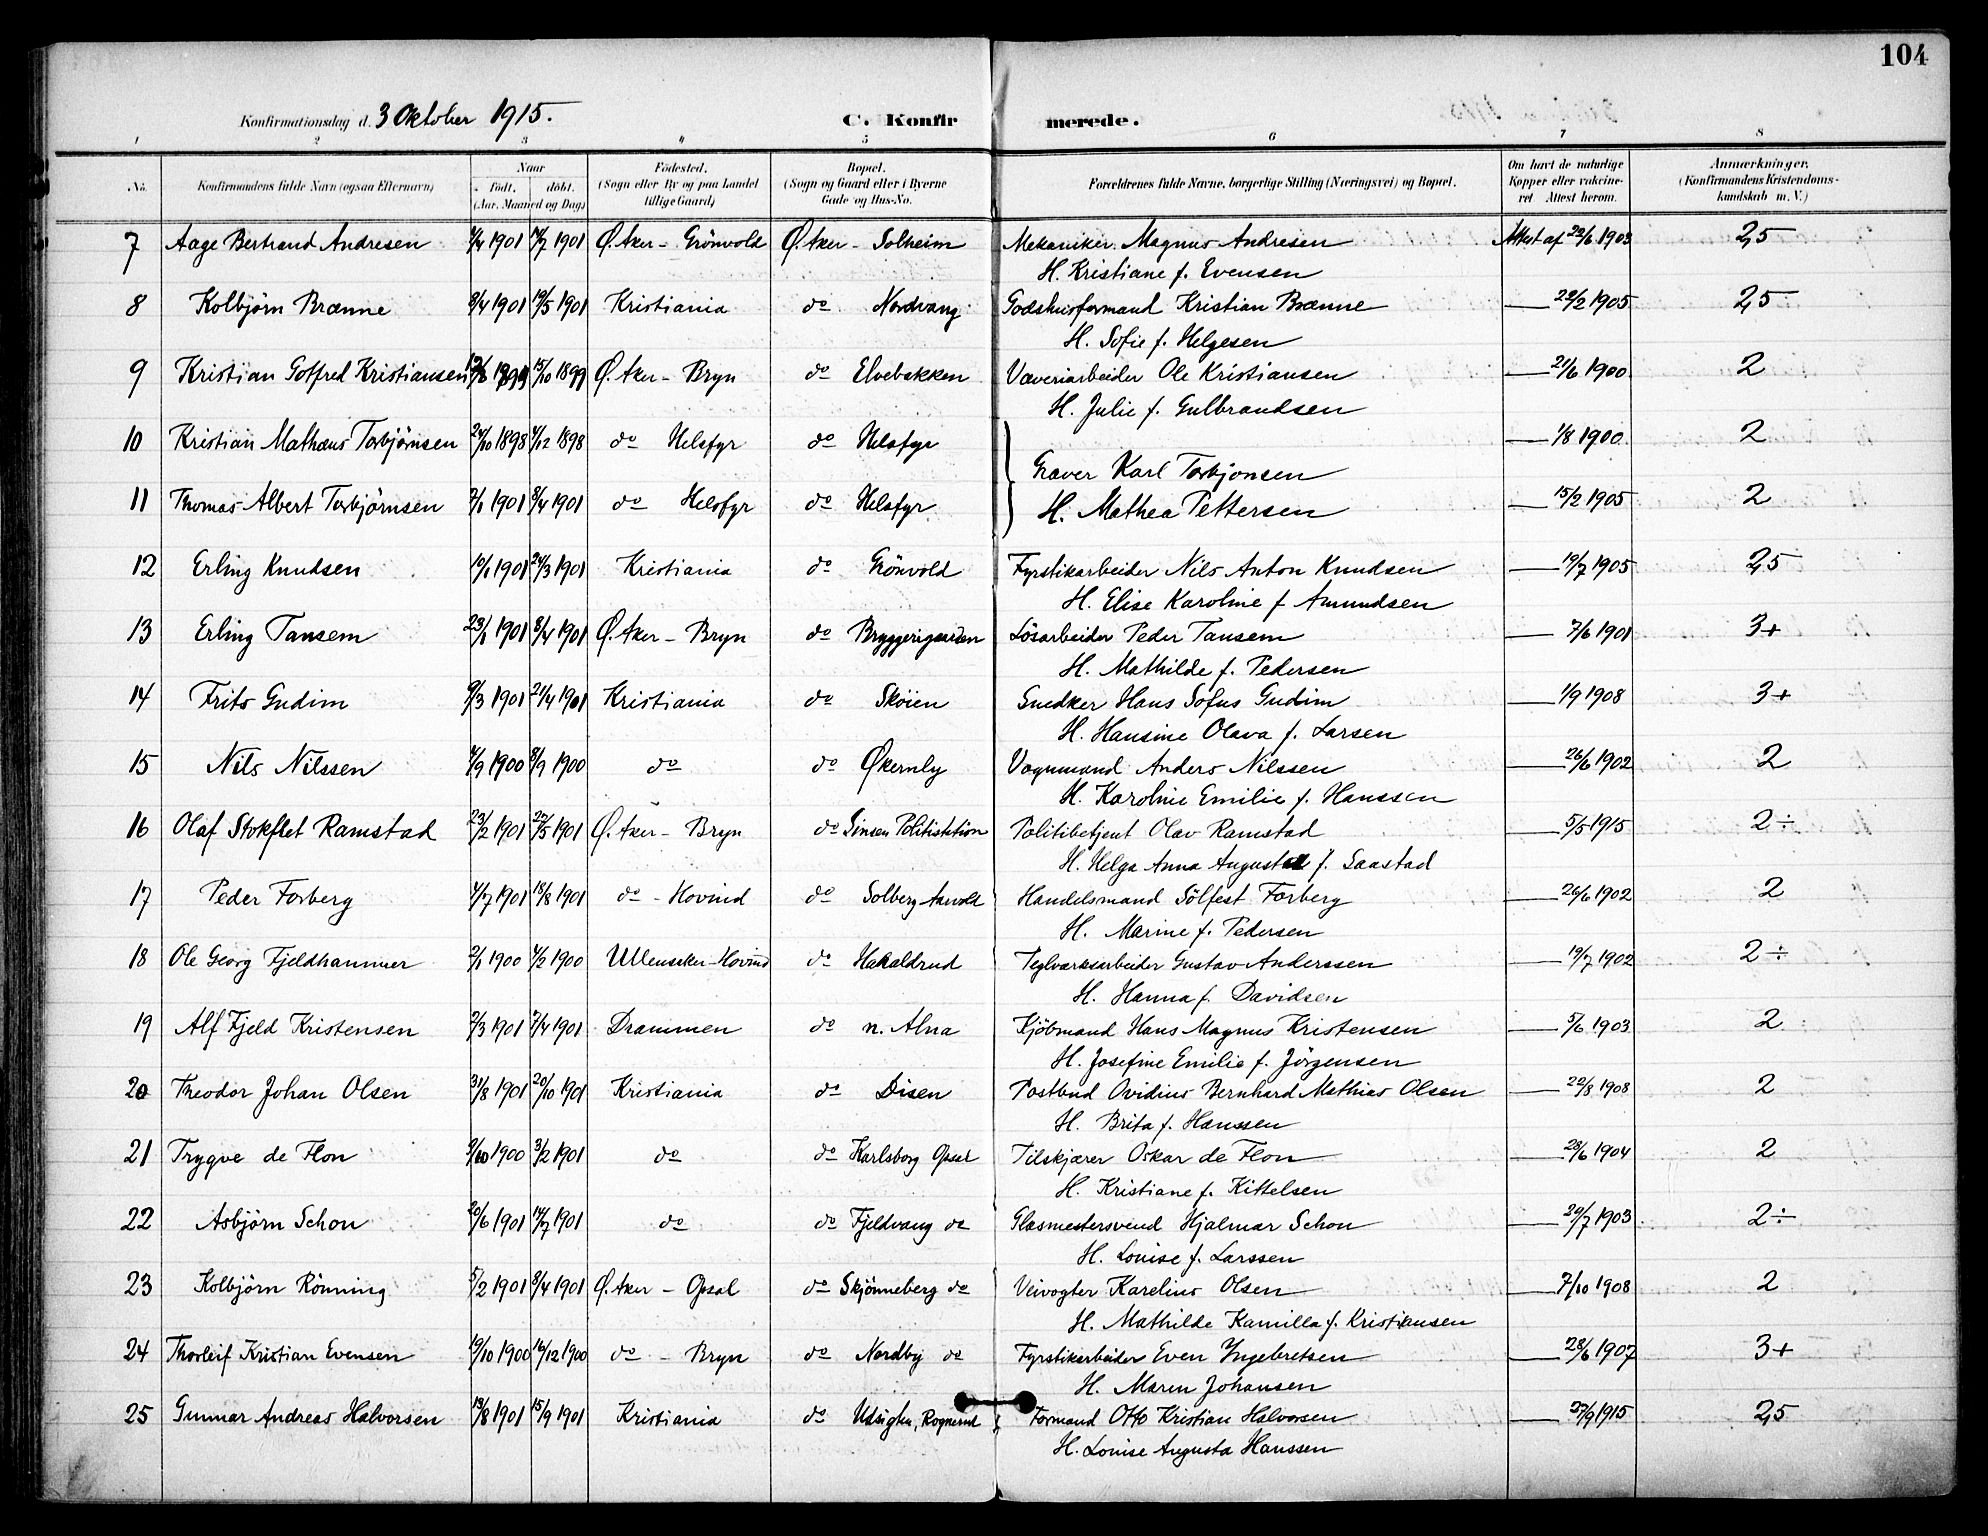 104
Konfirmationsdag d. 3 Oktober 1915. C. Konfirmerede.
1 2 3 4 5 6 7 8
No. Konfirmandens fulde Navn (ogsaa Efternavn) Naar født, døbt. (Aar, Maaned og Dag) Fødested. (Sogn eller By og paa Landet tillige Gaard) Bopæl. (Sogn og Gaard eller i Byerne Gade og Hus-No. Forældrenes fulde Navne, borgerlige Stilling (Næringsvei) og Bopæl. Om havt de naturlige Kopper eller vakcineret Attest herom. Anmærkninger. (Konfirmandens Kristendomskundskab m. V.)
7 Aage Bertrand Andresen 1/4 1901 14/7 1901 Ø. Aker - Grönvold Ø. Aker - Solheim Mekaniker Magnus Andresen Attest af 23/6 1903 2,5
H. Kristiane f. Evensen
8 Kolbjörn Brænne 8/4 1901 19/5 1901 Kristiania do Nordvang Godshusformand Kristian Brænne — 28/2 1905 2,5
H. Sofie f. Helgesen
9 Kristian Gotfred Kristiansen 1899 15/10 1899 Ø. Aker - Bryn do Elvebakken Væveriarbeider Ole Kristiansen — 21/6 1900 2
H. Julie f. Gulbrandsen
10 Kristian Mathæus Torbjörnsen 24/10 1898 4/12 1898 do Helsfyr do Helsfyr — 1/8 1900 2
Graver Karl Torbjonsen
11 Thomas Albert Torbjörnsen 7/1 1901 8/4 1901 do Helsfyr do Helsfyr H. Mathea Pettersen — 15/2 1905 2
12 Erling Knudsen 10/1 1901 24/3 1901 Kristiania do Grönvold Fyrstikarbeider Nils Anton Knudsen — 19/7 1905 2,5
H. Elise Karoline f Amundsen
13 Erling Tansem 23/1 1901 8/4 1901 Ø. Aker - Bryn do Bryggerigaarden Lösarbeider Peder Tansem — 7/6 1901 3+
H. Mathilde f. Pedersen
14 Frits Gudim 9/3 1901 21/4 1901 Kristiania do Sköien Snedker Hans Sofus Gudim — 1/9 1908 3+
H. Hansine Olava f. Larsen
15 Nils Nilssen 4/9 1900 8/9 1900 do do Økernly Vognmand Anders Nilssen — 26/6 1902 2
H. Karoline Emilie f. Hanssen
16 Olaf Stokflet Ramstad 23/2 1901 27/5 1901 Ø. Aker - Bryn do Sinsen Politistation Politibetjent Olav Ramstad — 5/5 1915 2÷
H. Helga Anna Augusta f. Saastad
17 Peder Forberg 4/7 1901 18/8 1901 do - Hovind do Solberg Aarvold Handelsmand Sölfest Forberg — 26/6 1902 2
H. Marine f. Pedersen
18 Ole Georg Fjeldhammer 2/1 1900 4/2 1900 Ullensaker-Hovind do Hakaldrud Teglværksarbeider Gustav Anderssen — 19/7 1902 2÷
H. Hanna f. Davidsen
19 Alf Fjeld Kristensen 2/3 1901 7/4 1901 Drammen do n. Alna Kjöbmand Hans Magnus Kristensen — 5/6 1903 2
H. Josefine Emilie f. Jörgensen
20 Theodor Johan Olsen 31/8 1901 20/10 1901 Kristiania do Disen Postbud Ovidius Bernhard Mathias Olsen — 22/8 1908 2
H. Brita f. Hanssen
21 Trygve de Flon 9/10 1900 3/2 1901 do do Karlsborg Opsal Tilskjærer Oskar de Flon — 28/6 1904 2
H. Kristiane f. Kittelsen
22 Asbjörn Schon 20/6 1901 14/7 1901 do do Fjeldvang do Glasmestersvend Hjalmar Schon — 29/7 1903 2÷
H. Louise f. Larssen
23 Kolbjörn Rönning 5/2 1901 8/4 1901 Ø. Aker - Opsal do Skjönneberg do Veivogter Karelius Olsen — 7/10 1908 2
H. Mathilde Kamilla f. Kristiansen
24 Thorleif Kristian Evensen 19/10 1900 16/12 1900 do - Bryn do Nordby do Fyrstikarbeider Even Yngebretsen — 28/6 1907 3+
H. Maren Johansen
25 Gunnar Andreas Halvorsen 13/8 1901 15/9 1901 Kristiania do Udsigten, Rognerud Formand Otto Kristian Halvorsen — 27/9 1915 2,5
H. Louise Augusta Hanssen